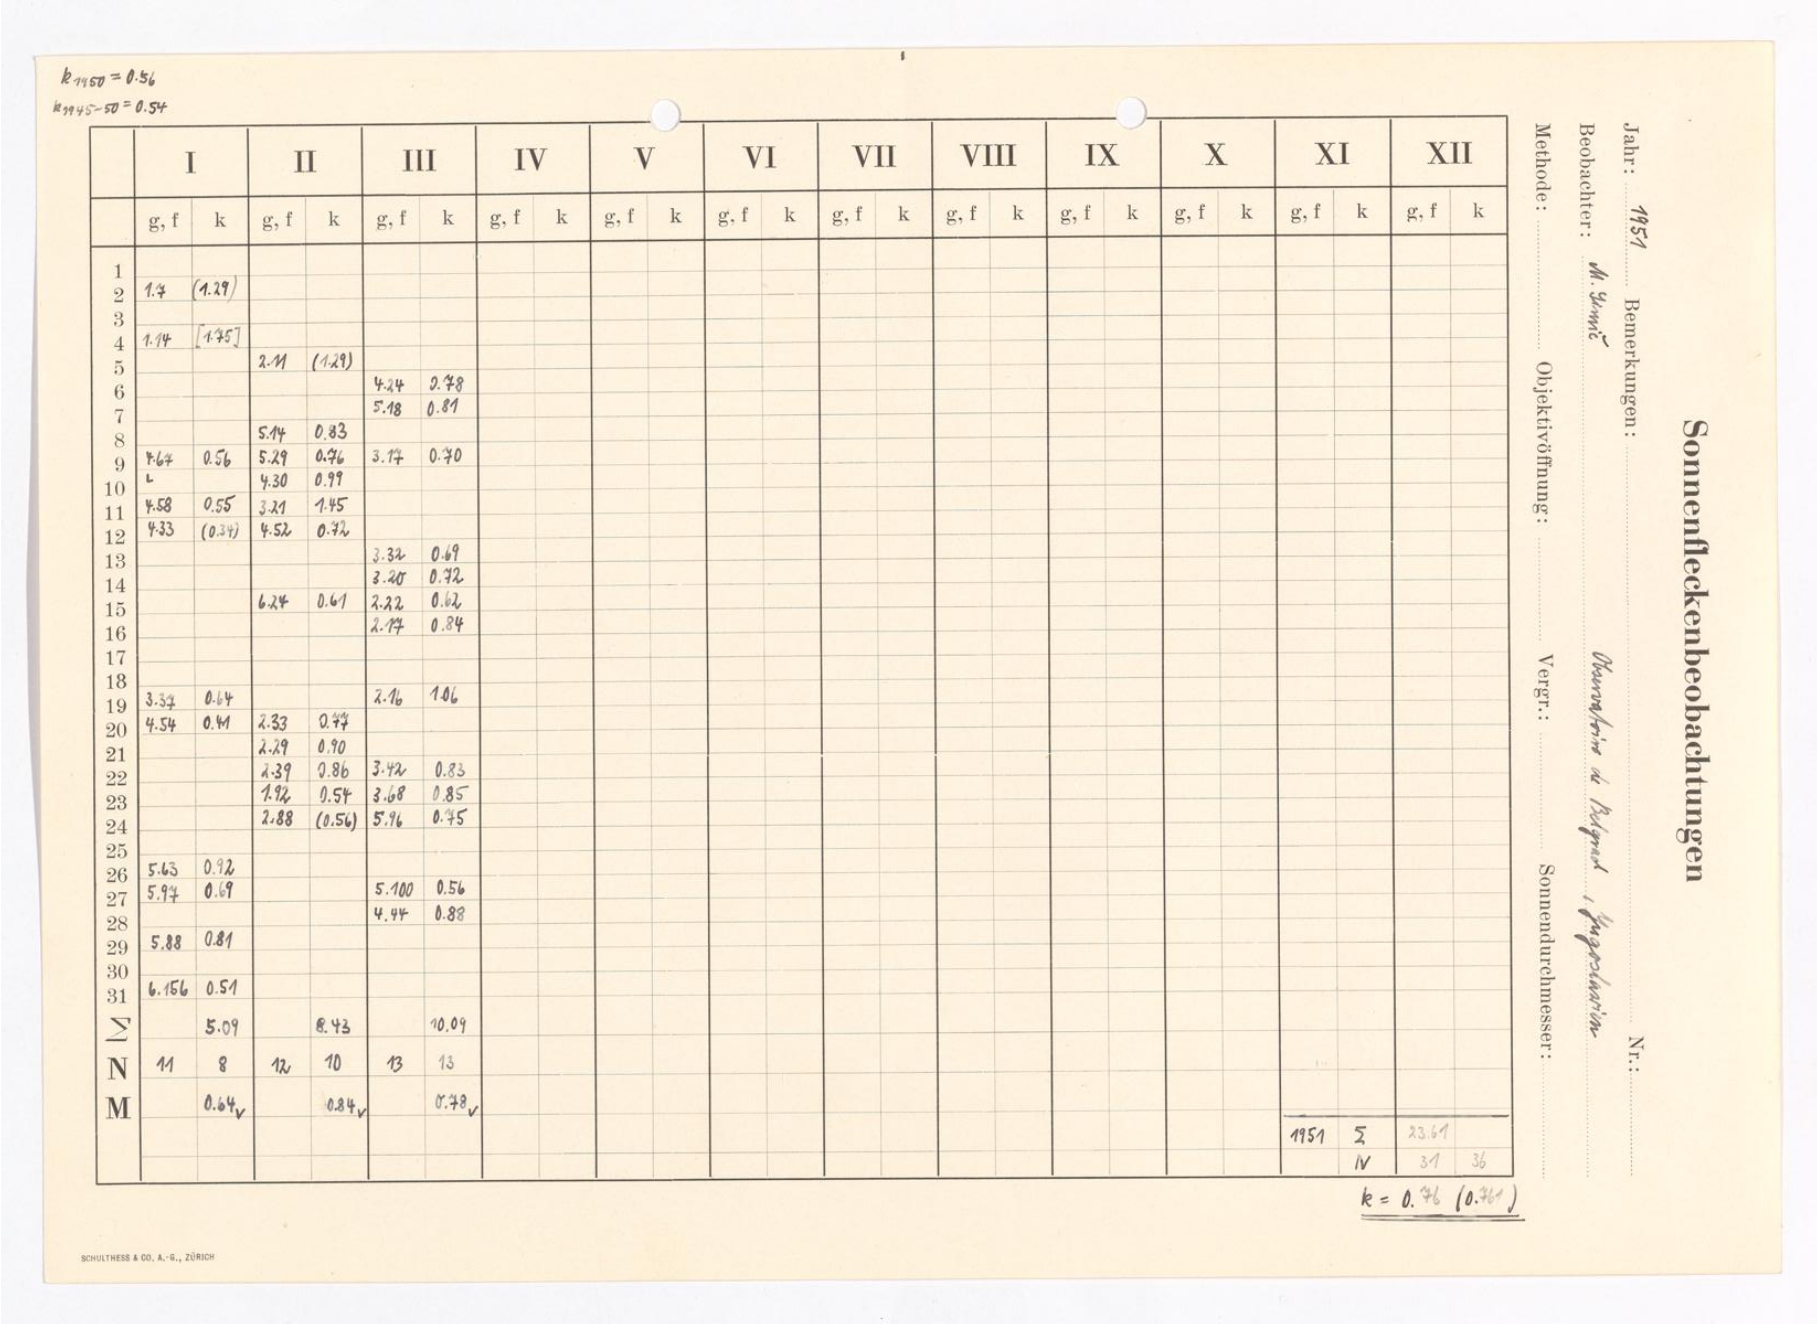 k1950 = 0.56
k1945-50 = 0.54
Sonnenfleckenbeobachtungen
Jahr: 1951 Bemerkungen: Nr.:
Beobachter: M. Observatoire de Belgrad, Jugoslavien
Methode: Objektivöffnung: Vergr.: Sonnendurchmesser:
I II III IV V VI VII VIII IX X XI XII
g, f k g, f k g, f k g, f k g, f k g, f k g, f k g, f k g, f k g, f k g, f k g, f k
1
2 1.7 (1.29)
3
4 1.14 [1.75]
5 2.11 (1.29)
6 4.24 0.78
7 5.18 0.81
8 5.14 0.83
9 4.67 0.56 5.29 0.76 3.17 0.70
10 4.30 0.99
11 4.58 0.55 3.21 1.45
12 4.33 (0.34) 4.52 0.72
13 3.32 0.69
14 3.20 0.72
15 6.24 0.61 2.22 0.62
16 2.17 0.84
17
18
19 3.37 0.64 2.16 1.06
20 4.54 0.41 2.33 0.77
21 2.29 0.90
22 2.39 0.86 3.42 0.83
23 1.92 0.54 3.68 0.85
24 2.88 (0.56) 5.96 0.75
25
26 5.63 0.92
27 5.97 0.69 5.100 0.56
28 4.44 0.88
29 5.88 0.81
30
31 6.156 0.51
Σ 5.09 8.43 10.09
N 11 8 12 10 13 13
M 0.64✓ 0.84✓ 0.78✓
1951 Σ 23.61
N 31 36
k = 0.76 (0.761)
SCHULTHESS & CO. A.-G., ZÜRICH